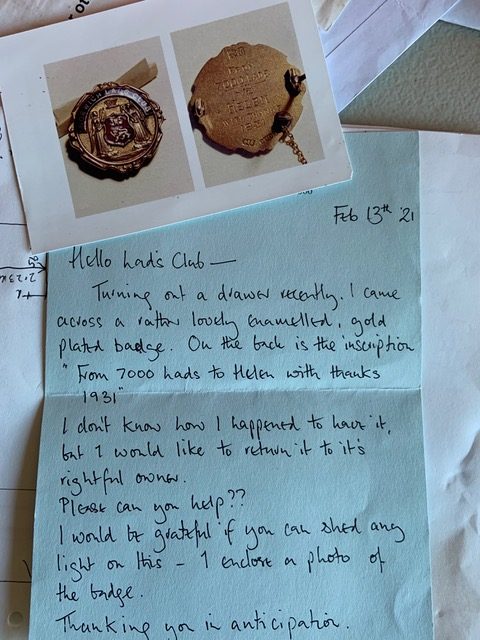 FROM
7000 LADS
TO
HELEN
WITH THANKS
1931
Feb 13th '21
Hello Lads Club —
Turning out a drawer recently, I came
across a rather lovely enamelled, gold
plated badge. On the back is the inscription
" From 7000 Lads to Helen with thanks
1931"
I don't know how I happened to have it,
but I would like to return it to it's
rightful owner.
Please can you help??
I would be grateful if you can shed any
light on this – I enclose a photo of
the badge.
Thanking you in anticipation.